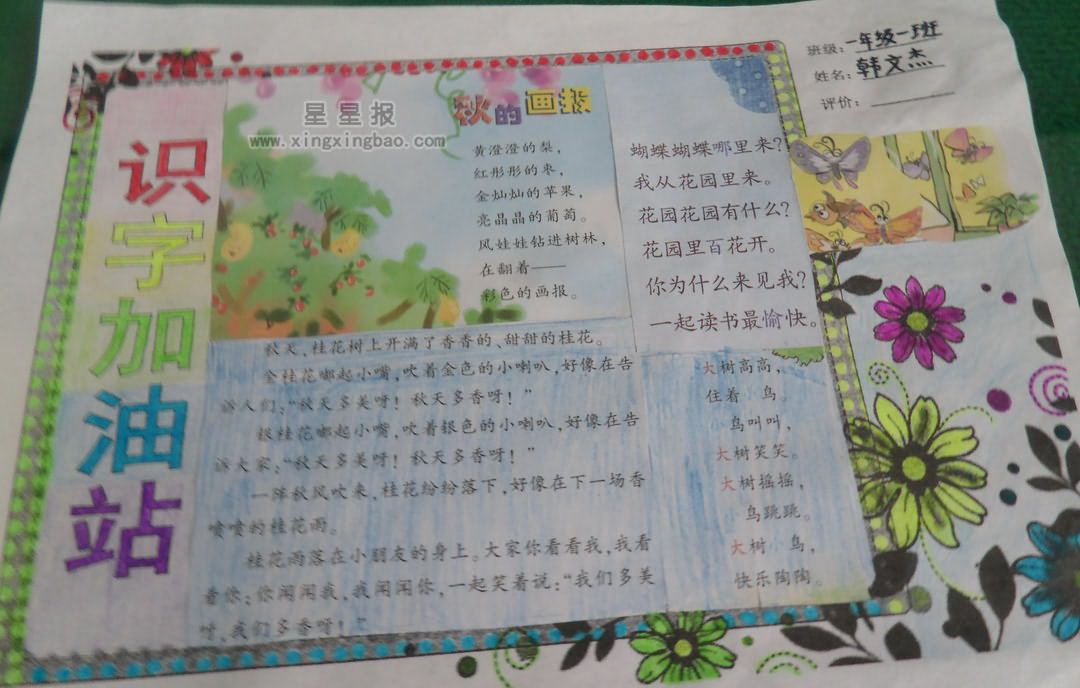 班级：一年级一班
姓名：韩文杰
评价：
识字加油站
星星报
www.xingxingbao.com
秋的画报
黄澄澄的梨，
红彤彤的枣，
金灿灿的苹果，
亮晶晶的葡萄。
风娃娃钻进树林，
在翻着——
彩色的画报。
蝴蝶蝴蝶哪里来？
我从花园里来。
花园花园有什么？
花园里百花开。
你为什么来见我？
一起读书最愉快。
秋天，桂花树上开满了香香的、甜甜的桂花。
金桂花嘟起小嘴，吹着金色的小喇叭，好像在告
诉人们：“秋天多美呀！秋天多香呀！”
银桂花嘟起小嘴，吹着银色的小喇叭，好像在告
诉大家：“秋天多美呀！秋天多香呀！”
一阵秋风吹来，桂花纷纷落下，好像在下一场香
喷喷的桂花雨。
桂花雨落在小朋友的身上。大家你看看我，我看
看你；你闻闻我，我闻闻你，一起笑着说：“我们多美
呀，我们多香呀！”
大树高高，
住着小鸟。
小鸟叫叫，
大树笑笑。
大树摇摇，
小鸟跳跳。
大树小鸟，
快乐陶陶。